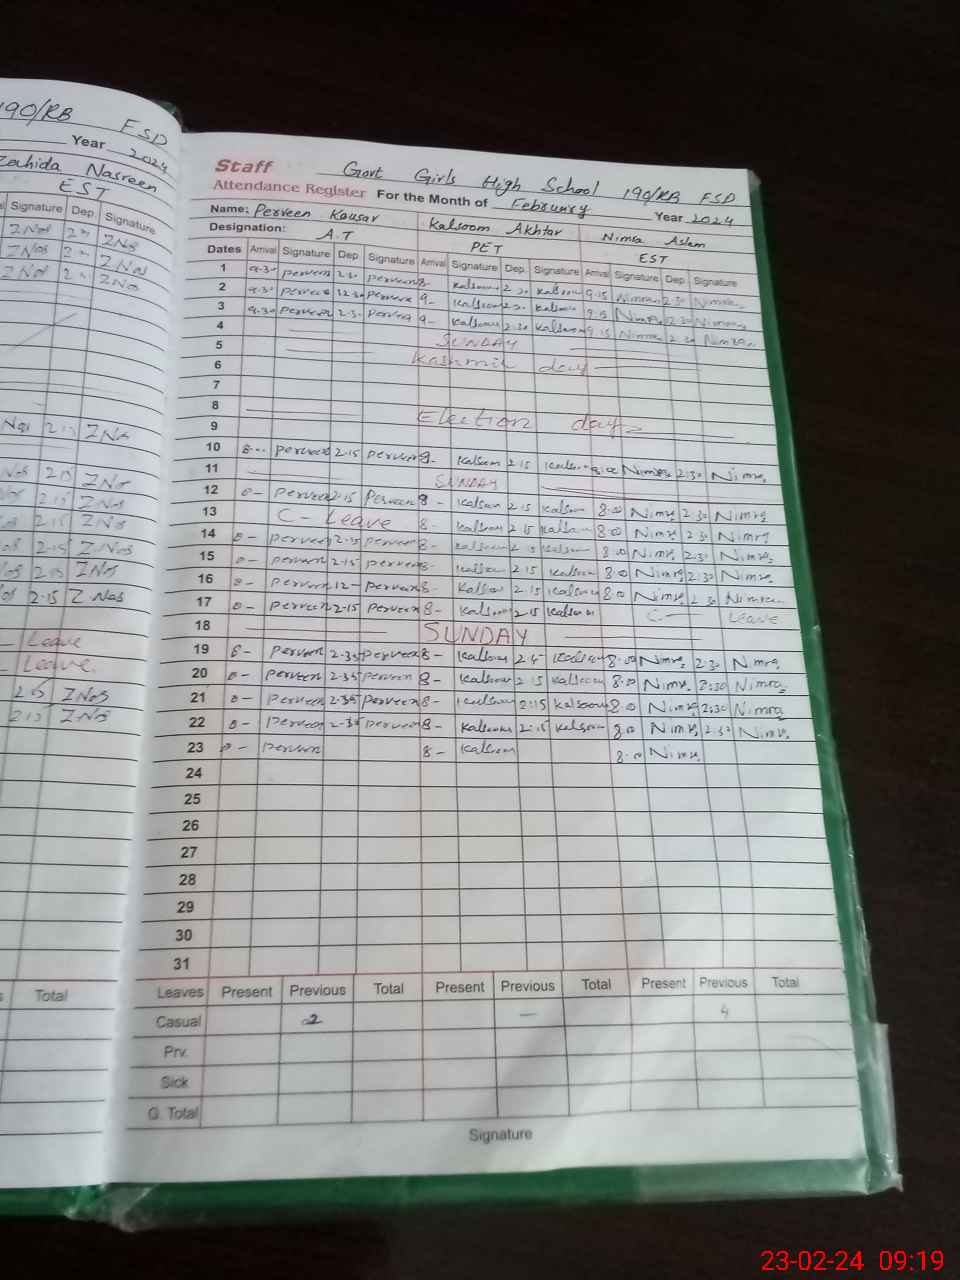 190/RB FSD
Year 2024
Zahida Nasreen
EST
Signature Dep. Signature
ZNos 2 ZNos
ZNos 2 ZNos
ZNos 2 ZNos
2.15 ZNos
2.15 ZNos
2.15 ZNos
2.15 ZNos
2.15 ZNos
2.15 ZNos
2.15 ZNos
Leave
Leave
2.15 ZNos
2.15 ZNos
Total
Staff Govt Girls High School 190/RB FSD
Attendance Register For the Month of Februnry Year 2024
Name: Perveen Kousar Kalsoom Akhtar Nimra Aslam
Designation: A.T PET EST
Dates Arrival Signature Dep. Signature Arrival Signature Dep. Signature Arrival Signature Dep. Signature
1 9.30 perveen 2.30 perveen kalsoom 2.30 kalsoom 9.15 Nimra 2.30 Nimra
2 9.30 perveen 12.30 perveen 9- kalsoom kalsoom 9.15 Nimra 2.30 Nimra
3 9.30 perveen 2.30 perveen 9- kalsoom 2.30 kalsoom 9.15 Nimra 2.30 Nimra
4 SUNDAY
5 Kashmir day
6
7
8 Election day
9
10 perveen 2.15 perveen kalsoom 2.15 kalsoom Nimra 2:30 Nimra
11 SUNDAY
12 8- perveen 2.15 perveen 8- kalsoom 2.15 kalsoom 8.00 Nimra 2.30 Nimra
13 C- Leave 8- kalsoom 2.15 kalsoom 8.00 Nimra 2.30 Nimra
14 8- perveen 2.15 perveen 8- kalsoom 2.15 kalsoom 8.00 Nimra 2.30 Nimra
15 8- perveen 2.15 perveen 8- kalsoom 2.15 kalsoom 8.00 Nimra 2:30 Nimra
16 8- perveen 12- perveen 8- kalsoom 2.15 kalsoom 8.00 Nimra 2.30 Nimra
17 8- perveen 2.15 perveen 8- kalsoom 2.15 kalsoom C- Leave
18 SUNDAY
19 8- perveen 2.35 perveen 8- kalsoom kalsoom 8.00 Nimra 2.30 Nimra
20 8- perveen 2.35 perveen 8- kalsoom 2.15 kalsoom 8.00 Nimra 2:30 Nimra
21 8- perveen 2.35 perveen 8- kalsoom 2:15 kalsoom 8.00 Nimra 2:30 Nimra
22 8- perveen perveen 8- kalsoom 2.15 kalsoom 8.00 Nimra 2.30 Nimra
23 8- perveen 8- kalsoom 8.00 Nimra
24
25
26
27
28
29
30
31
Leaves Present Previous Total Present Previous Total Present Previous Total
Casual 2 — 4
Prv.
Sick
G. Total
Signature
23-02-24 09:19